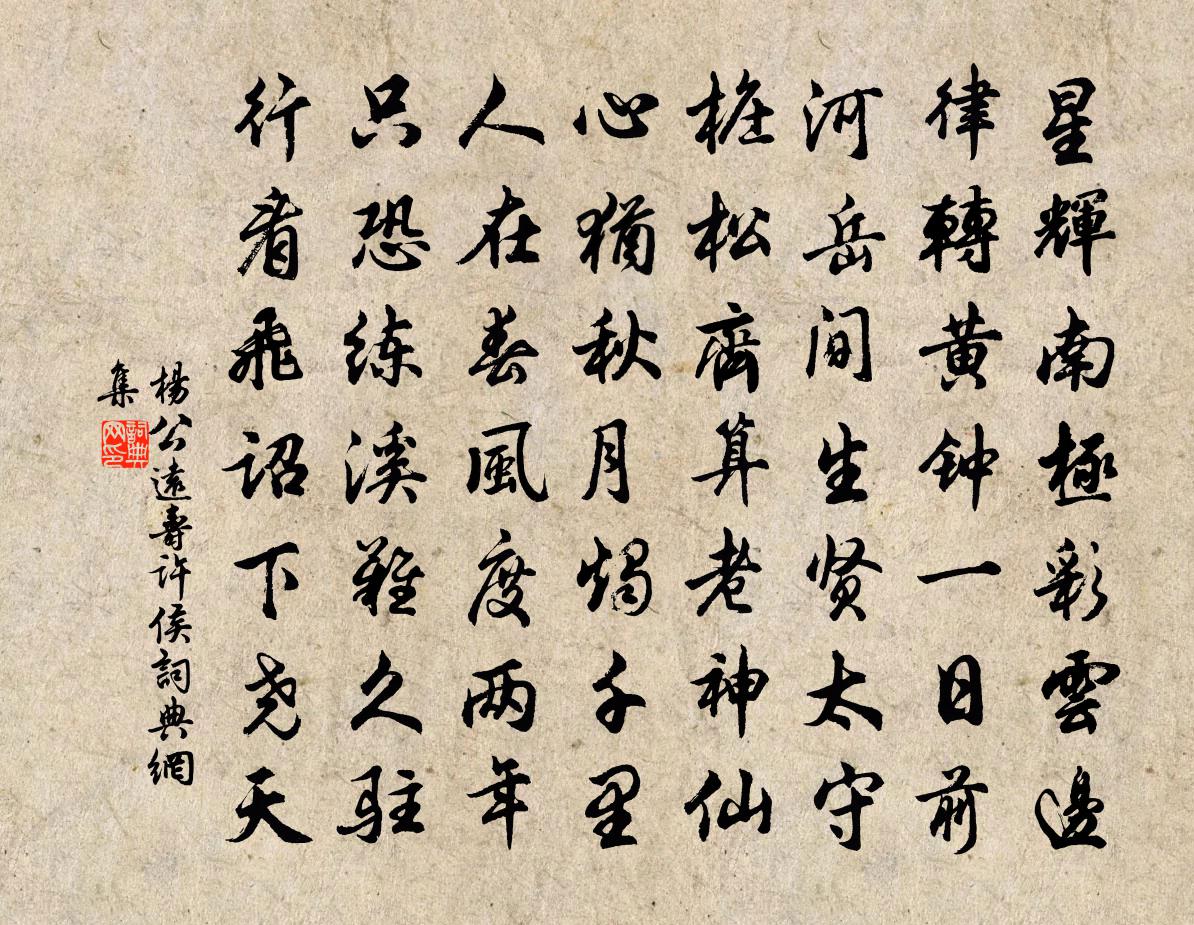 星輝南極彩雲邊
律轉黄钟一日前
河岳间生贤太守
桩松齊算老神仙
心猶秋月燭千里
人在春風度两年
只恐练溪難久驻
行看飛詔下尧天
楊公遠壽許侯詞典網
集
詞典
网印